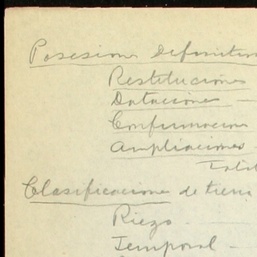 Posesion Definitiv
Restituciones
Dotaciones -
Confirmacion
Ampliaciones
Total
Clasificacione de tierr
Riego -
Temporal -